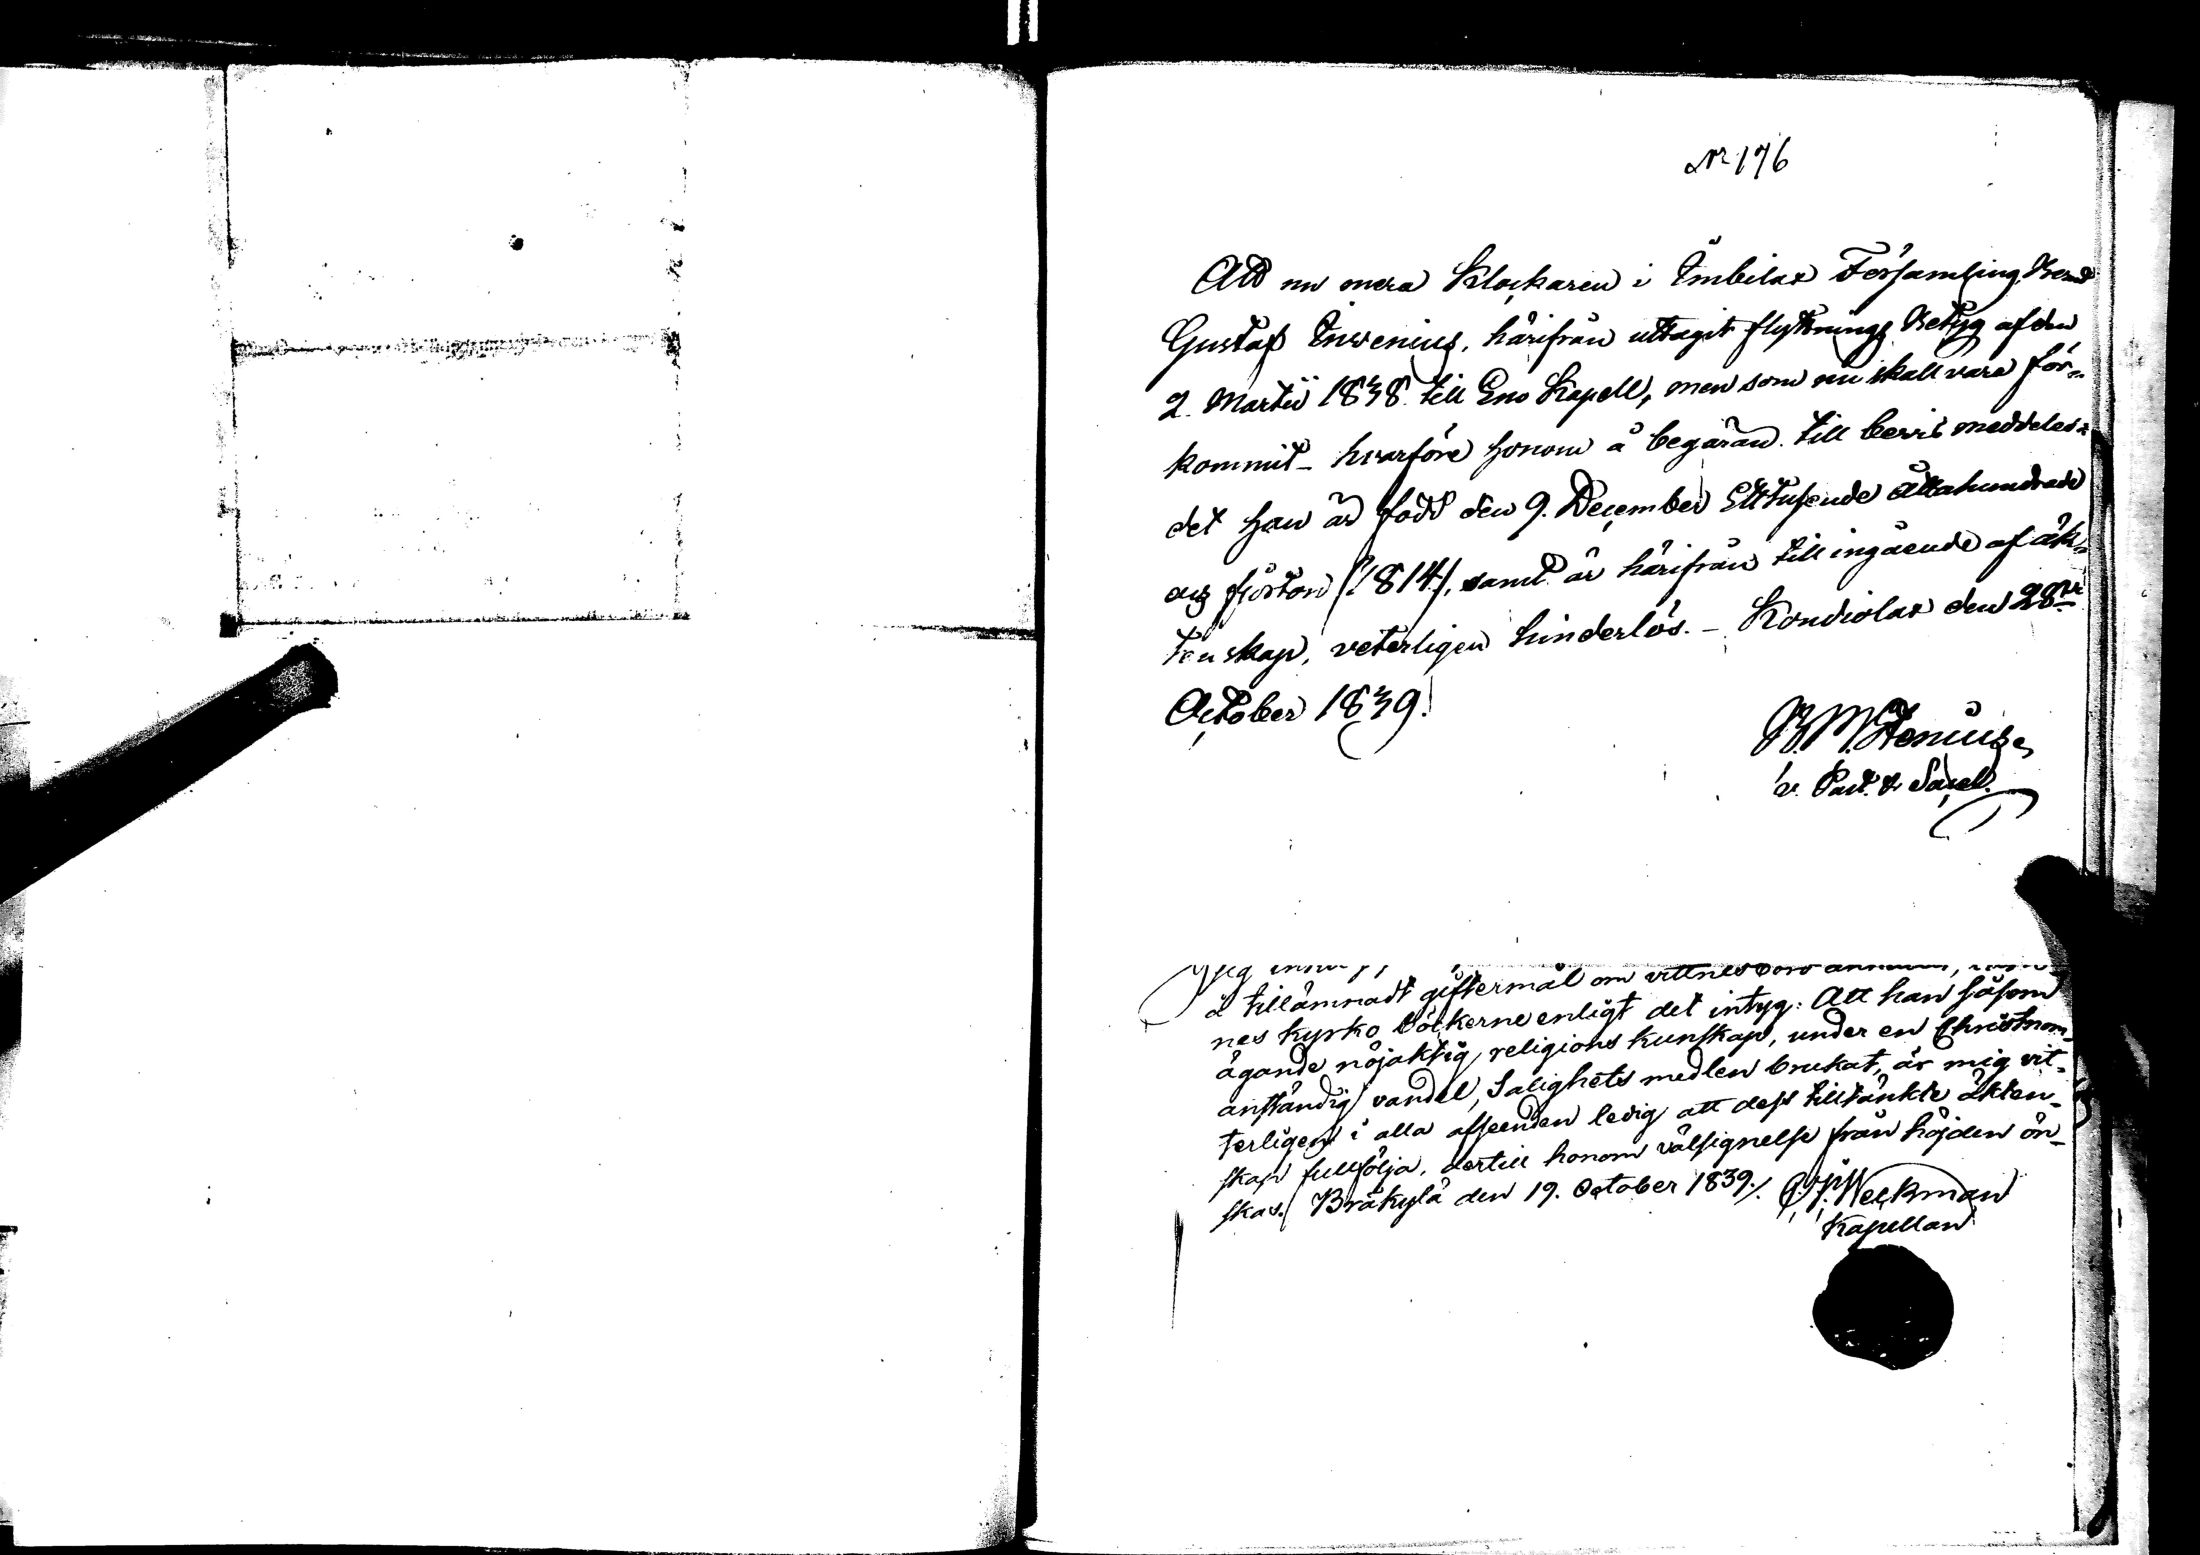 № 176
Att nu mera Klockaren i Imbilax Församling, Bernd
Gustaf Invenius, härifrån uttagit flyttnings Betyg af den
2. Martii 1838 till Eno Kapell, men som nu skall vara för-
kommit - hvarföre honom å begäran till bevis meddelas
det han är född den 9. December Ettusende Åttahundrade
och fjorton /:1814:/, samt är härifrån till ingående af äk-
tenskap, veterligen hinderlös. - Kondiolax den 28de
October 1839.
Stenius,
v. Past. & Sacell.
å tillämnadt giftermål om vittnesbörd
nes kyrko böckerne enligt det intyg: Att han såsom
ägande nöjaktig religions kunskap, under en Christnom
anständig vandel, Salighets medlen brukat, är mig vit-
terligen i alla afseenden ledig att dess tilltänkte äkten-
skap fullfölja, dertill honom välsignelse från höjden ön-
skas. Bräkylä den 19. October 1839./. Weckman
Kapellan